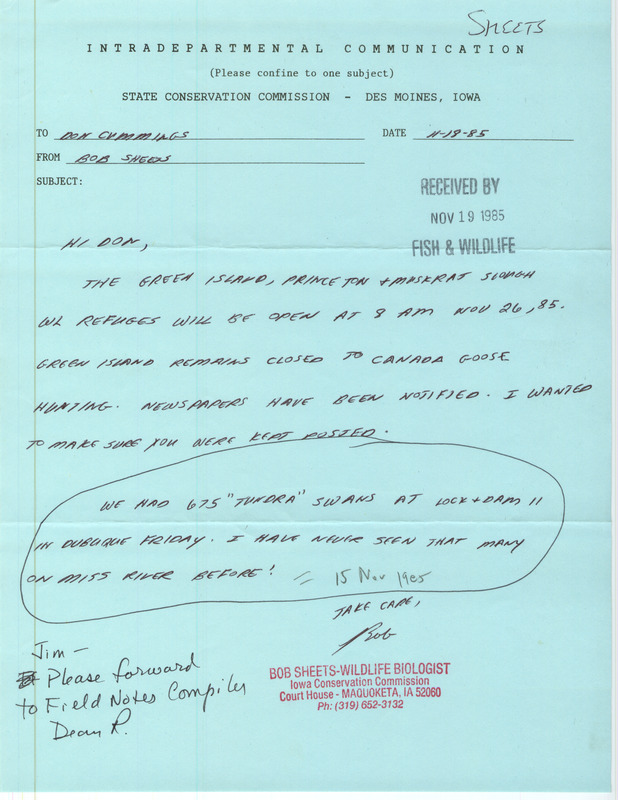 SHEETS
INTRADEPARTMENTAL COMMUNICATION
(Please confine to one subject)
STATE CONSERVATION COMMISSION - DES MOINES, IOWA
TO DON CUMMINGS DATE 11-18-85
FROM BOB SHEETS
SUBJECT:
RECEIVED BY
NOV 19 1985
FISH & WILDLIFE
HI DON,
THE GREEN ISLAND, PRINCETON + MUSKRAT SLOUGH
WL REFUGES WILL BE OPEN AT 8 AM NOV 26, 85.
GREEN ISLAND REMAINS CLOSED TO CANADA GOOSE
HUNTING. NEWSPAPERS HAVE BEEN NOTIFIED. I WANTED
TO MAKE SURE YOU WERE KEPT POSTED.
WE HAD 675 "TUNDRA" SWANS AT LOCK + DAM 11
IN DUBUQUE FRIDAY. I HAVE NEVER SEEN THAT MANY
ON MISS RIVER BEFORE! = 15 Nov 1985
TAKE CARE,
Bob
BOB SHEETS-WILDLIFE BIOLOGIST
Iowa Conservation Commission
Court House - MAQUOKETA, IA 52060
Ph: (319) 652-3132
Jim -
Please forward
to Field Notes Compiler
Dean R.